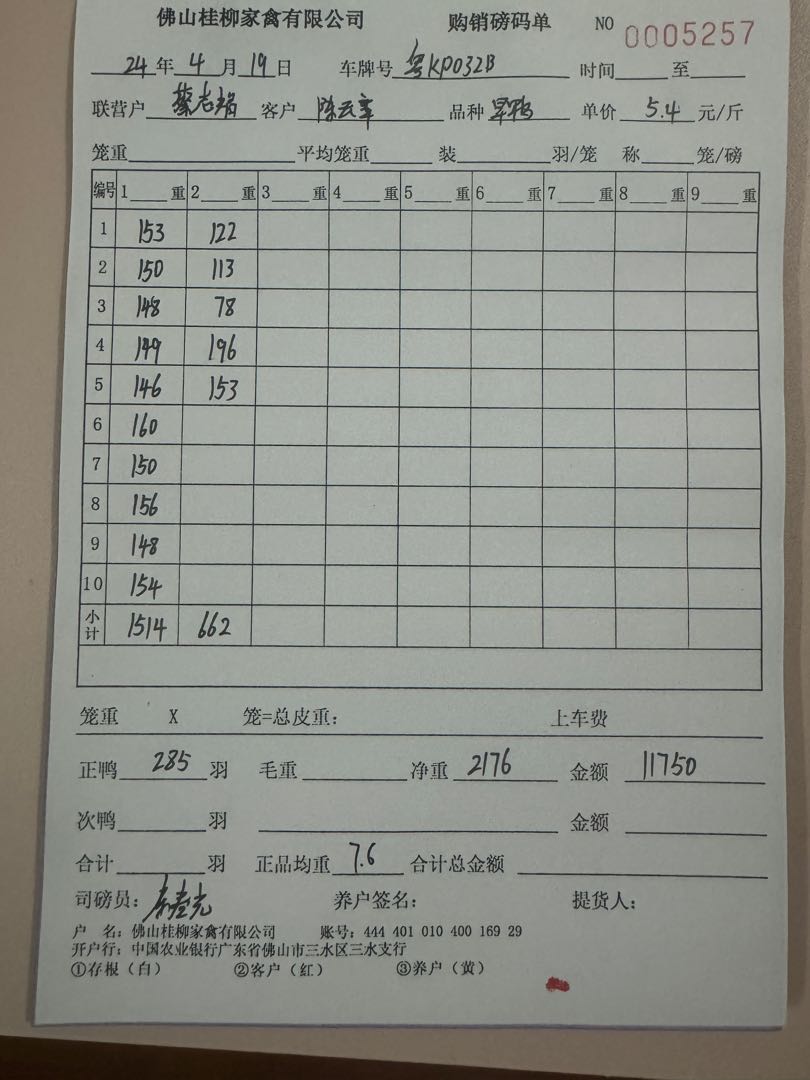 佛山桂柳家禽有限公司 购销磅码单 NO 0005257
24年4月19日 车牌号 粤KP032B 时间 至
联营户 蔡志娟 客户 陈云章 品种 旱鸭 单价 5.4 元/斤
笼重 平均笼重 装 羽/笼 称 笼/磅
编号 1 重 2 重 3 重 4 重 5 重 6 重 7 重 8 重 9 重
1 153 122
2 150 113
3 148 78
4 149 196
5 146 153
6 160
7 150
8 156
9 148
10 154
小计 1514 662
笼重 X 笼=总皮重: 上车费
正鸭 285 羽 毛重 净重 2176 金额 11750
次鸭 羽 金额
合计 羽 正品均重 7.6 合计总金额
司磅员: 养户签名: 提货人:
户 名: 佛山桂柳家禽有限公司 账号: 444 401 010 400 169 29
开户行: 中国农业银行广东省佛山市三水区三水支行
①存根（白） ②客户（红） ③养户（黄）